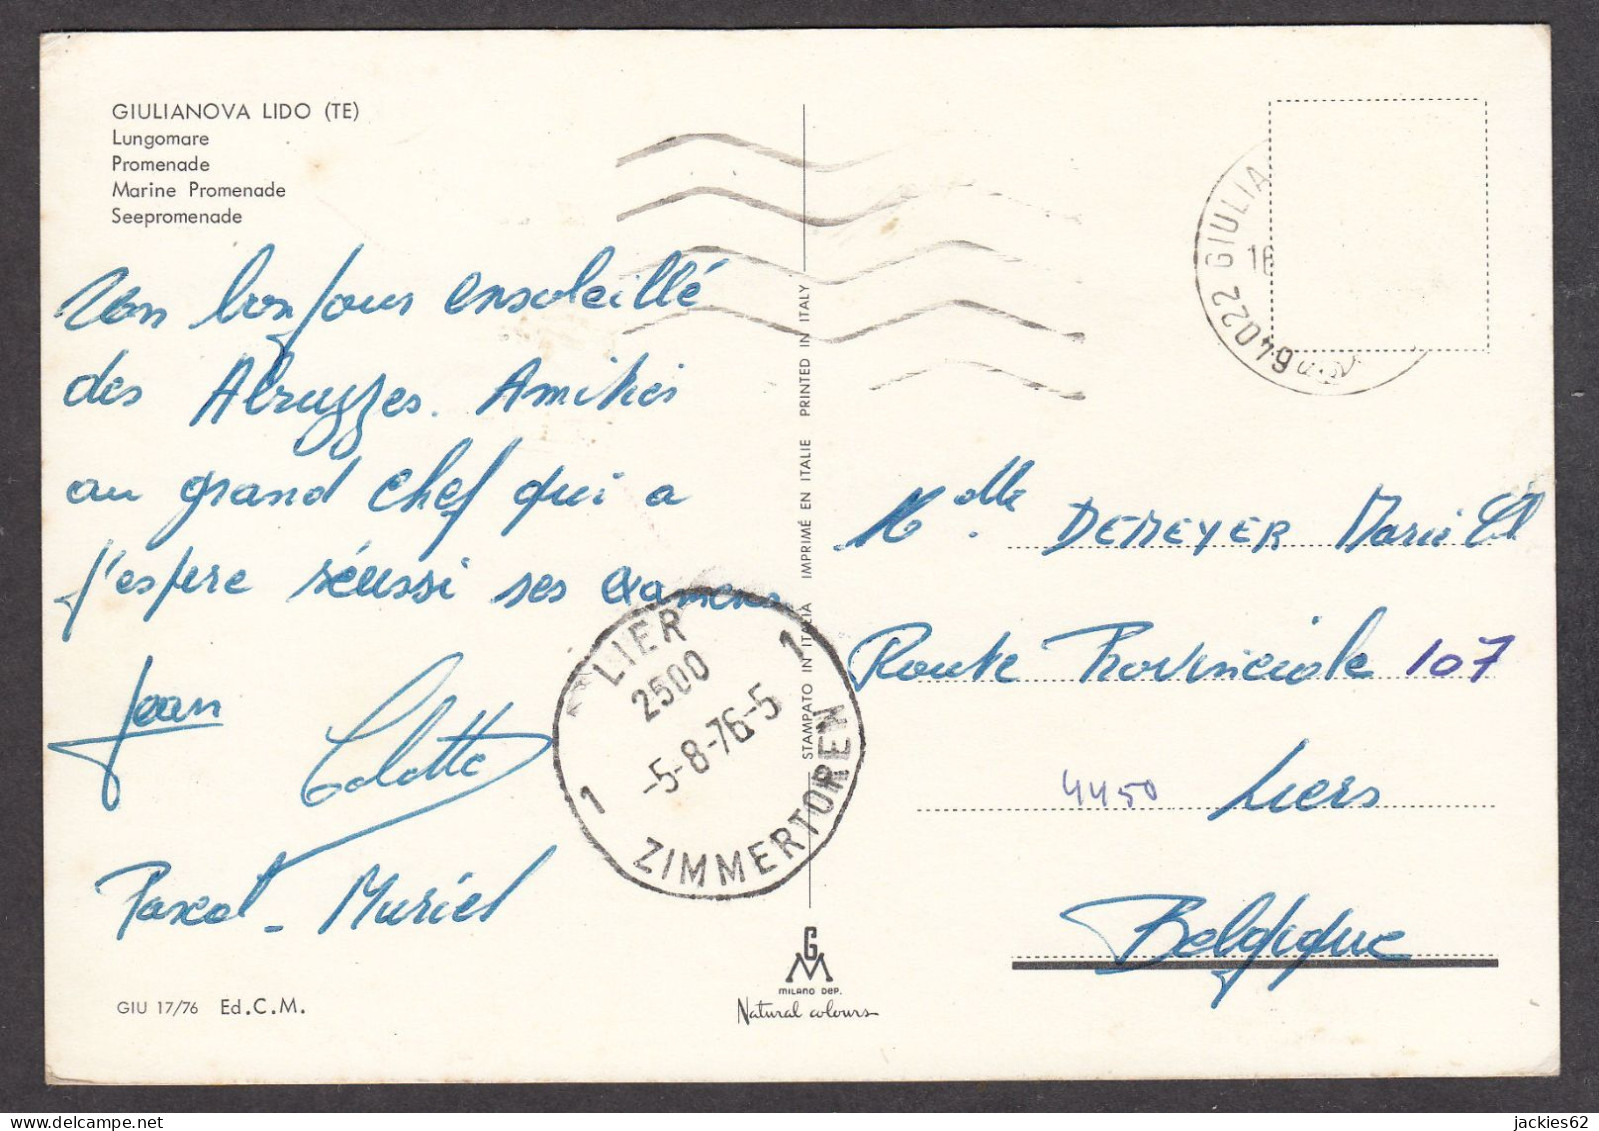 GIULIANOVA LIDO (TE)
Lungomare
Promenade
Marine Promenade
Seepromenade
Un bonjour ensoleillé
des Abruzzes. Amitiés
au grand chef qui a
j'espère réussi ses examens
Jean
Colette
Pascal - Muriel
GIU 17/76 Ed.C.M.
LIER
2500
-5-8-76-5
1 1
ZIMMERTOREN
STAMPATO IN ITALIA IMPRIMÉ EN ITALIE PRINTED IN ITALY
GM
MILANO DEP.
Natural colours
64022 GIULIA
16
Melle. DEMEYER
Route Provinciale 107
4450 Liers
Belgique
jackies62